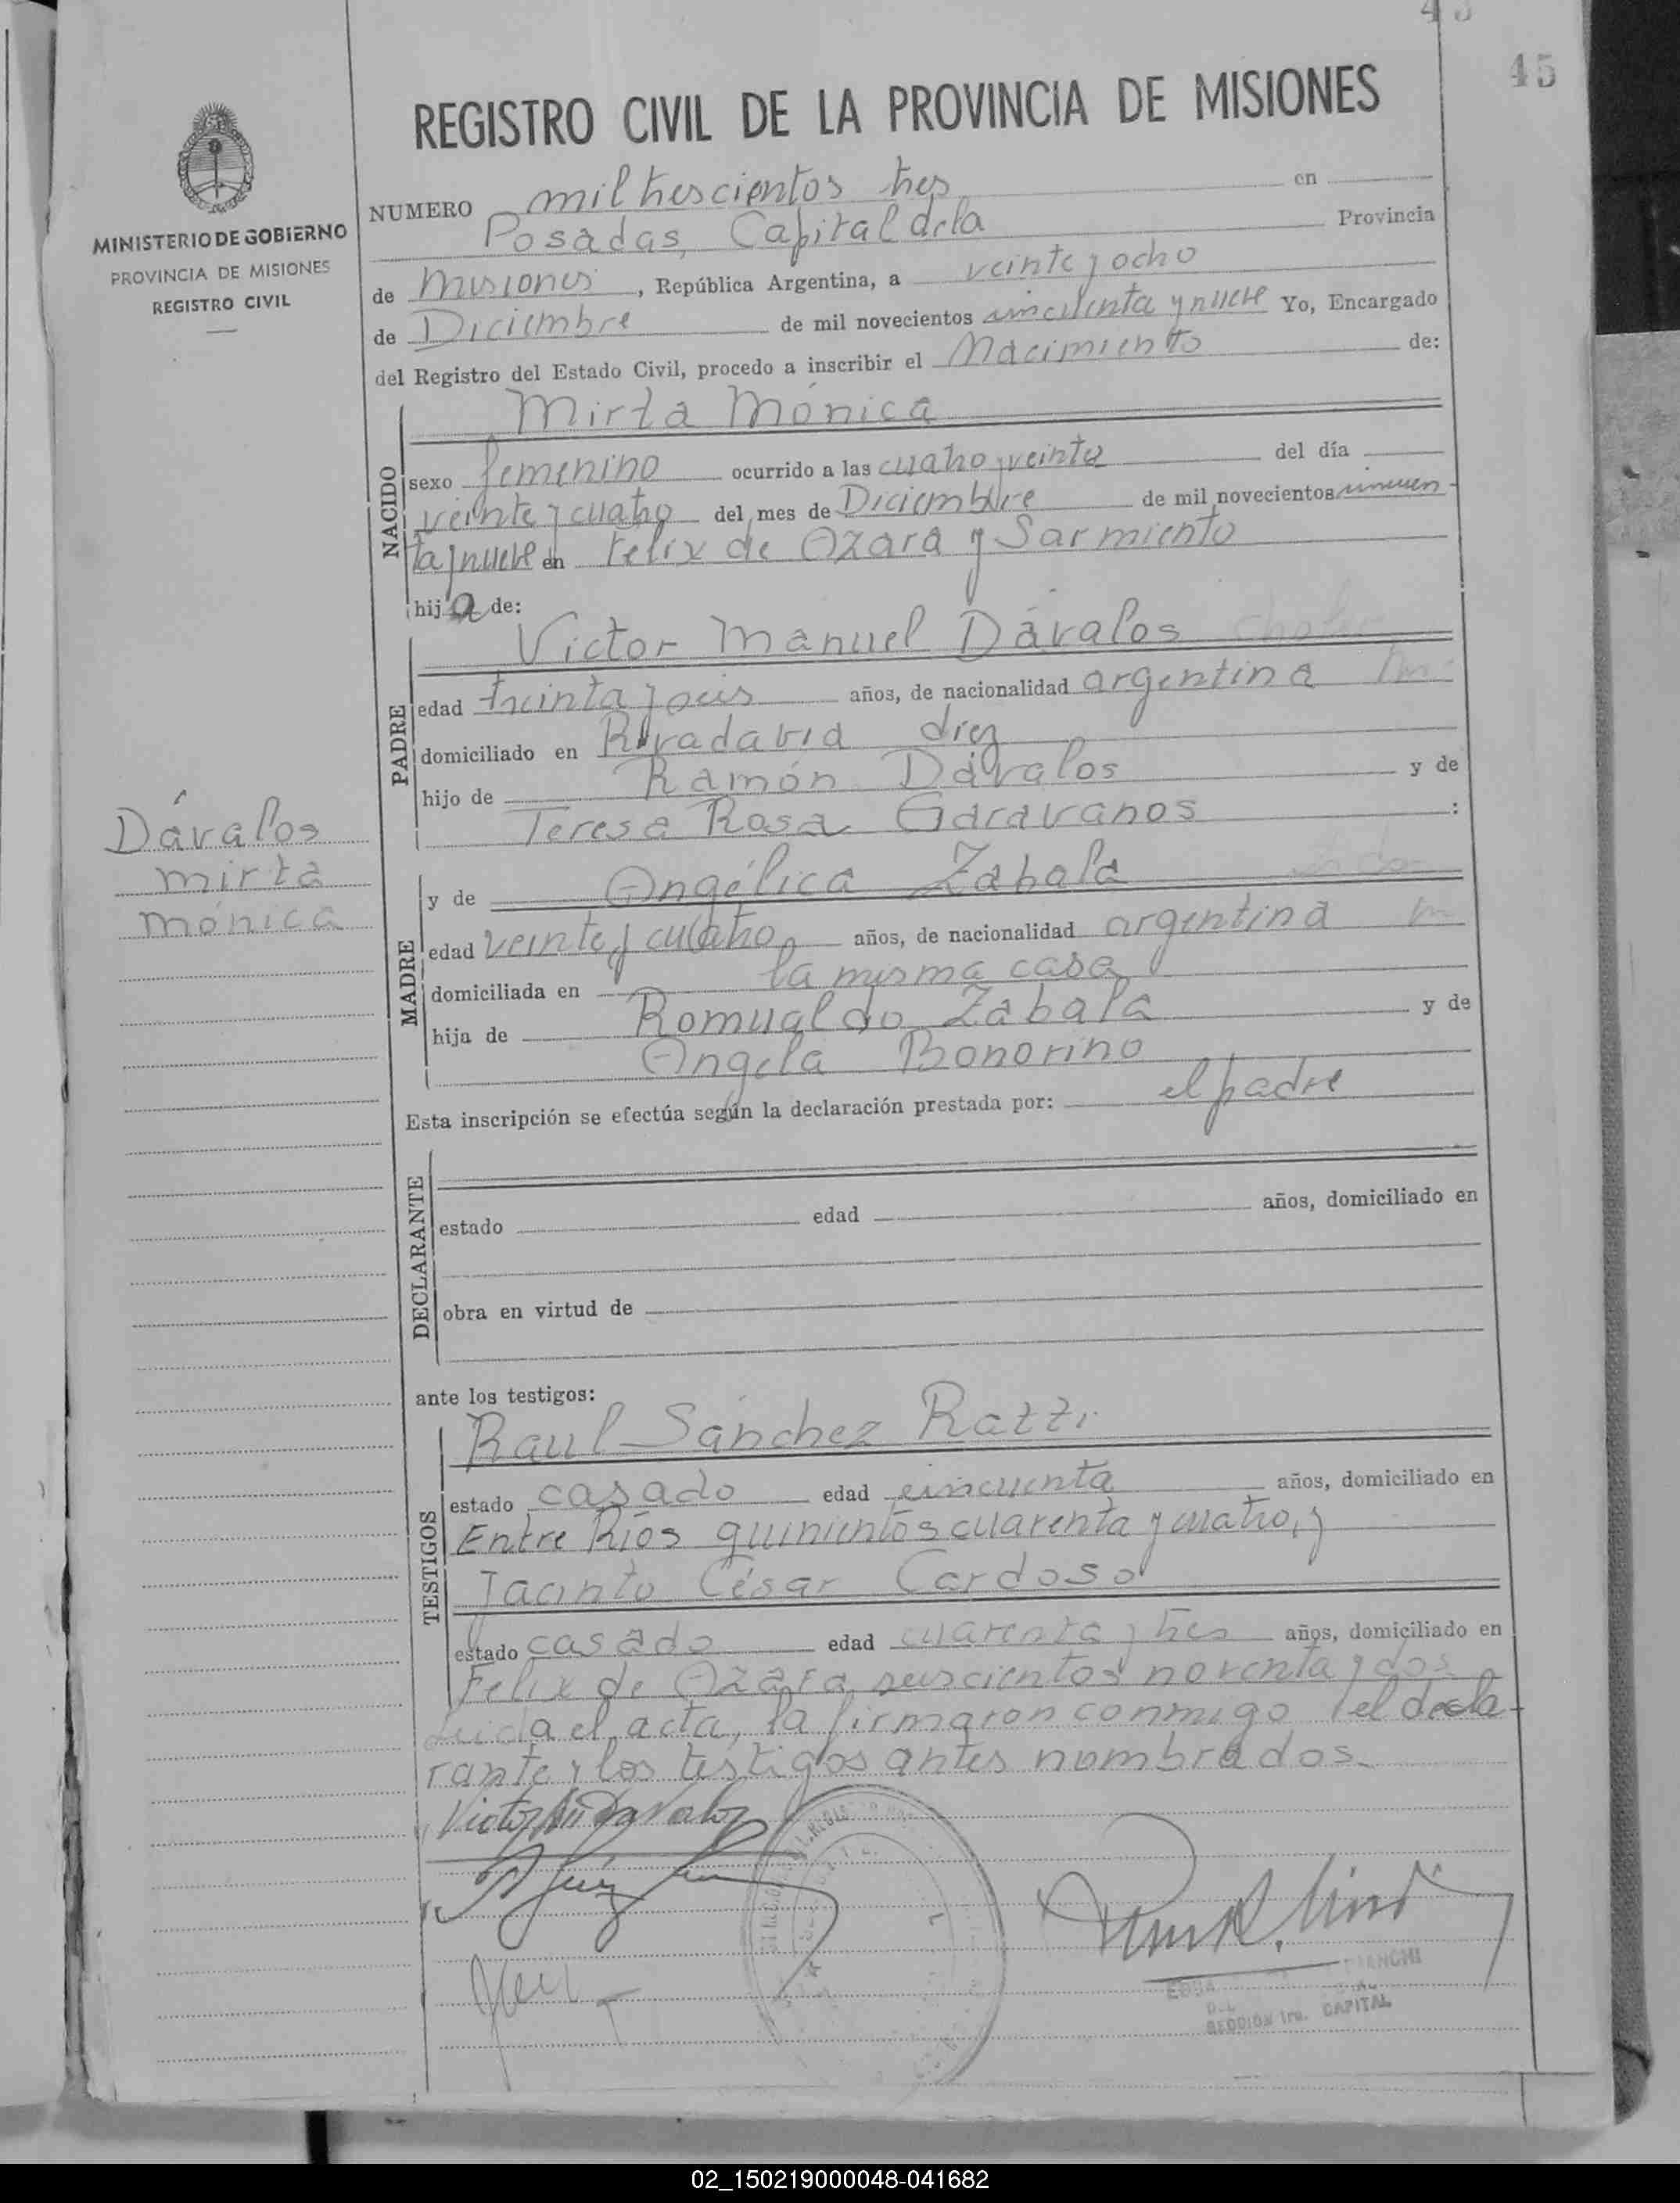 45
45
REGISTRO CIVIL DE LA PROVINCIA DE MISIONES
MINISTERIO DE GOBIERNO
PROVINCIA DE MISIONES
REGISTRO CIVIL
NUMERO mil trescientos tres en
Posadas, Capital de la Provincia
de Misiones, República Argentina, a veinte y ocho
de Diciembre de mil novecientos cincuenta y nueve Yo, Encargado
del Registro del Estado Civil, procedo a inscribir el Nacimiento de:
NACIDO
Mirta Mónica
sexo femenino ocurrido a las cuatro y veinte del día
veinte y cuatro del mes de Diciembre de mil novecientos cincuen-
ta y nueve en Felix de Azara y Sarmiento
hija de:
PADRE
Victor Manuel Dávalos
edad treinta y seis años, de nacionalidad argentina
domiciliado en Rivadavia diez
hijo de Ramón Dávalos y de
Teresa Rosa Garavanos :
Dávalos
Mirta
Mónica
MADRE
y de Angélica Zabala
edad veinte y cuatro años, de nacionalidad argentina
domiciliada en la misma casa
hija de Romualdo Zabala y de
Angela Bonorino
Esta inscripción se efectúa según la declaración prestada por: el padre
DECLARANTE
estado edad años, domiciliado en
obra en virtud de
ante los testigos:
TESTIGOS
Raul Sánchez Ratti
estado casado edad cincuenta años, domiciliado en
Entre Ríos quinientos cuarenta y cuatro, y
Jacinto César Cardoso
estado casado edad cuarenta y tres años, domiciliado en
Felix de Azara seiscientos noventa y dos
Leida el acta, la firmaron conmigo el decla-
rante y los testigos antes nombrados.
Victor M. Davalos
SECCION 1ra. CAPITAL
02_150219000048-041682